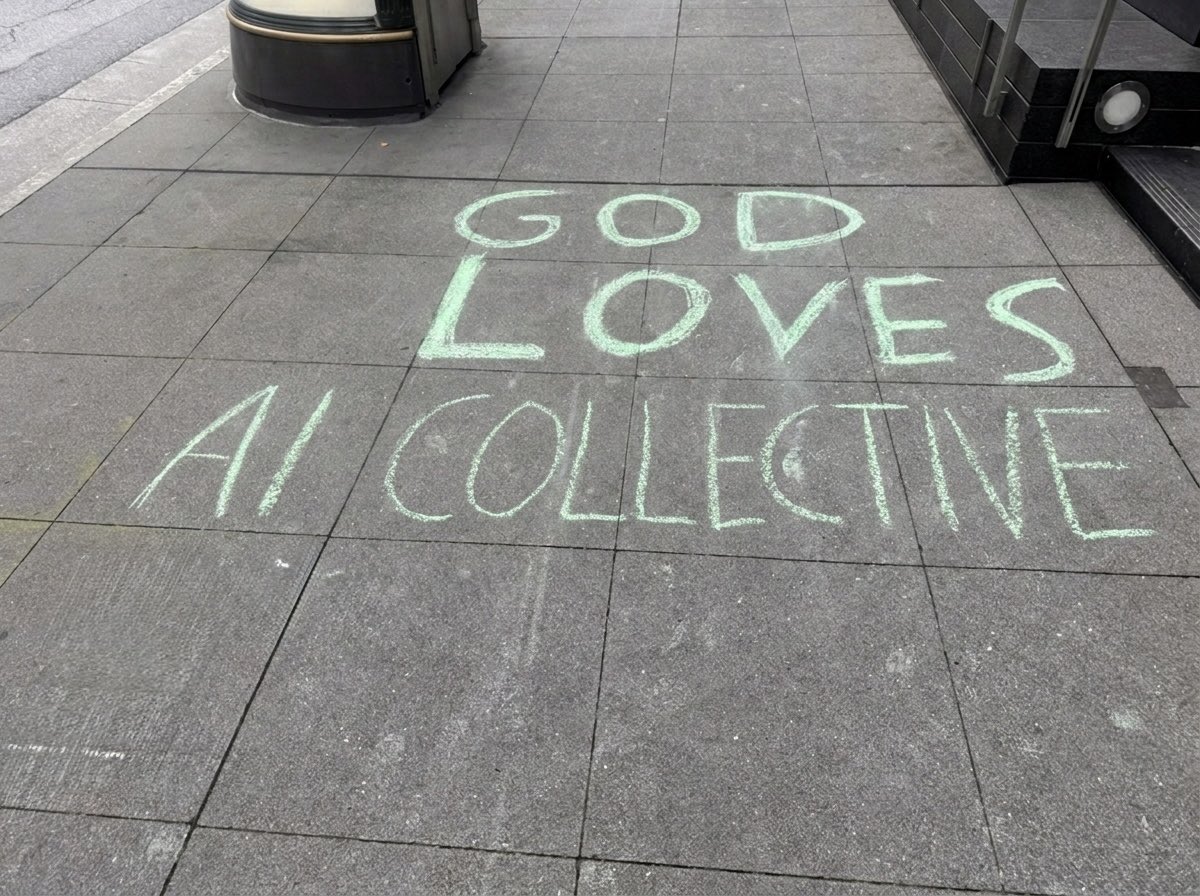 GOD
LOVES
AI COLLECTIVE